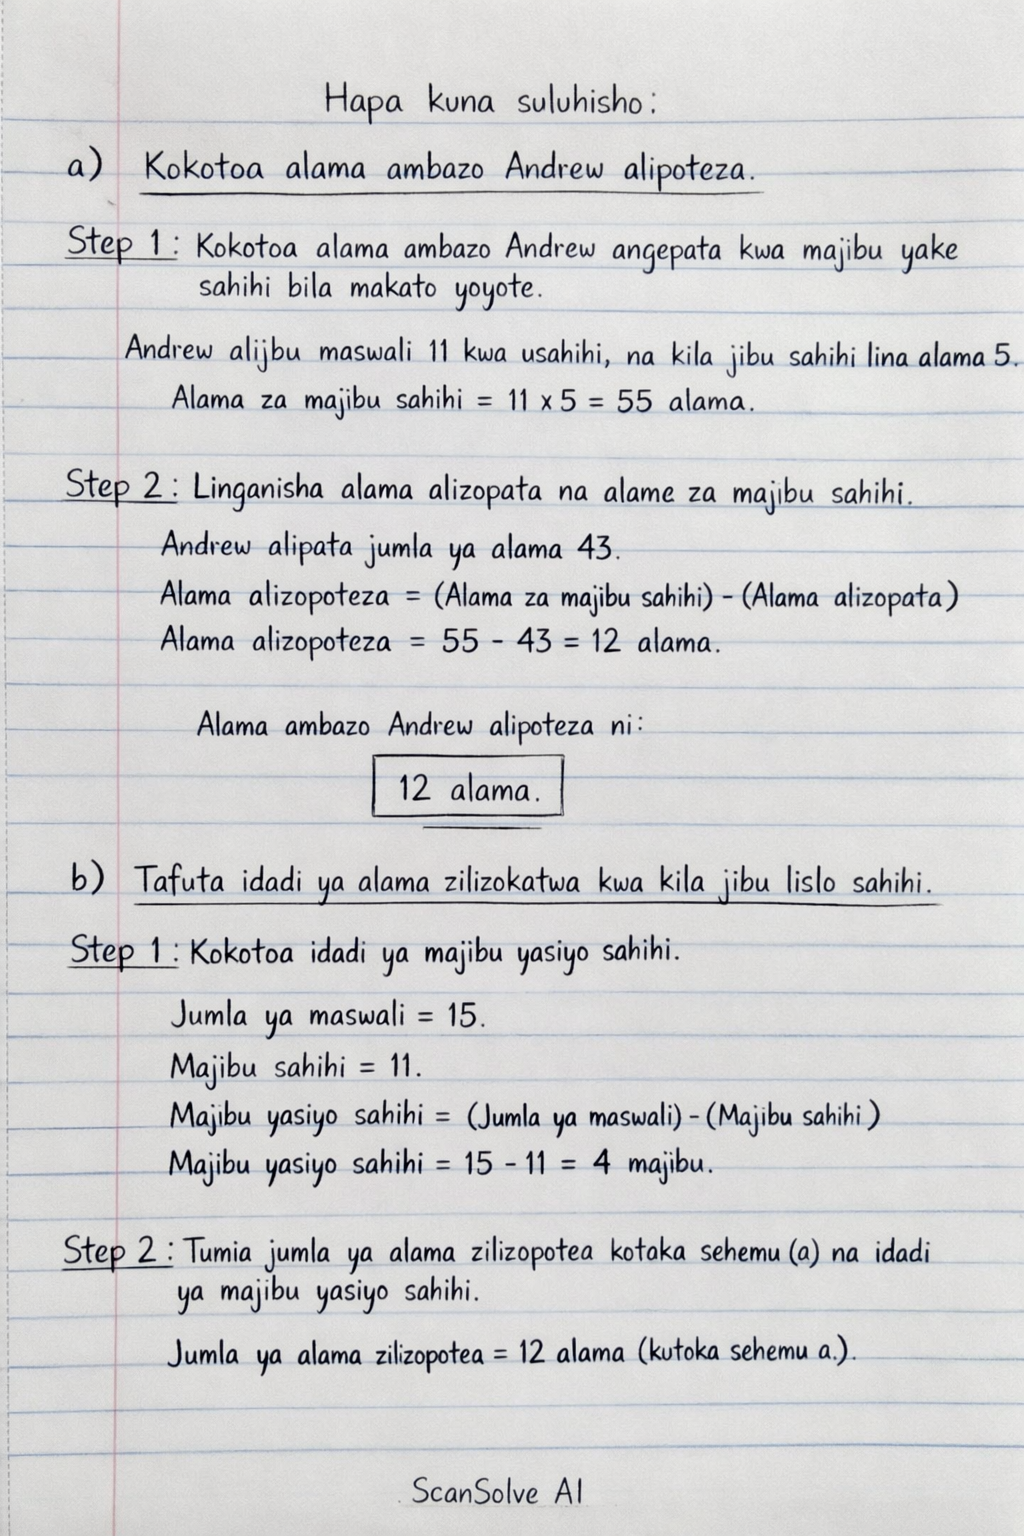 Hapa kuna suluhisho:
a) Kokotoa alama ambazo Andrew alipoteza.
Step 1: Kokotoa alama ambazo Andrew angepata kwa majibu yake
sahihi bila makato yoyote.
Andrew alijbu maswali 11 kwa usahihi, na kila jibu sahihi lina alama 5.
Alama za majibu sahihi = 11 x 5 = 55 alama.
Step 2: Linganisha alama alizopata na alame za majibu sahihi.
Andrew alipata jumla ya alama 43.
Alama alizopoteza = (Alama za majibu sahihi) - (Alama alizopata)
Alama alizopoteza = 55 - 43 = 12 alama.
Alama ambazo Andrew alipoteza ni:
12 alama.
b) Tafuta idadi ya alama zilizokatwa kwa kila jibu lislo sahihi.
Step 1: Kokotoa idadi ya majibu yasiyo sahihi.
Jumla ya maswali = 15.
Majibu sahihi = 11.
Majibu yasiyo sahihi = (Jumla ya maswali) - (Majibu sahihi)
Majibu yasiyo sahihi = 15 - 11 = 4 majibu.
Step 2: Tumia jumla ya alama zilizopotea kotaka sehemu (a) na idadi
ya majibu yasiyo sahihi.
Jumla ya alama zilizopotea = 12 alama (kutoka sehemu a.).
ScanSolve AI